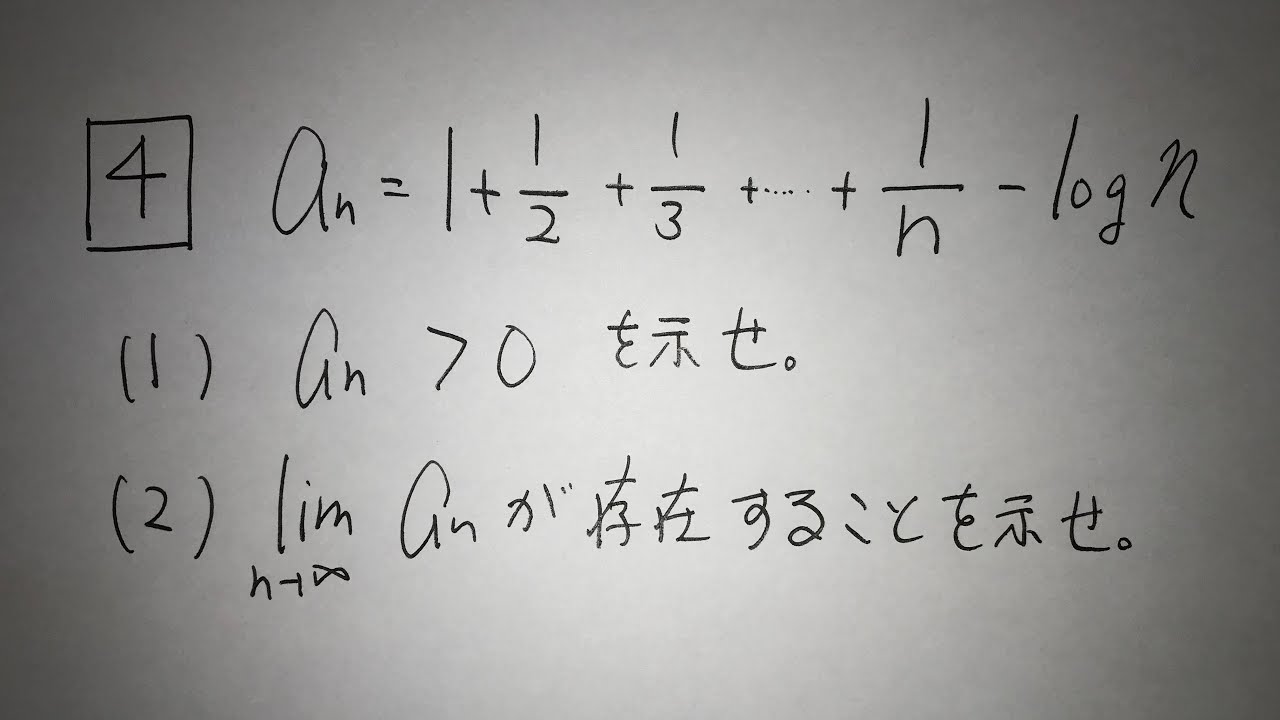 4 aₙ = 1 + 1/2 + 1/3 + ‥‥ + 1/n - log n
(1) aₙ > 0 を示せ。
(2) lim_{n→∞} aₙ が存在することを示せ。